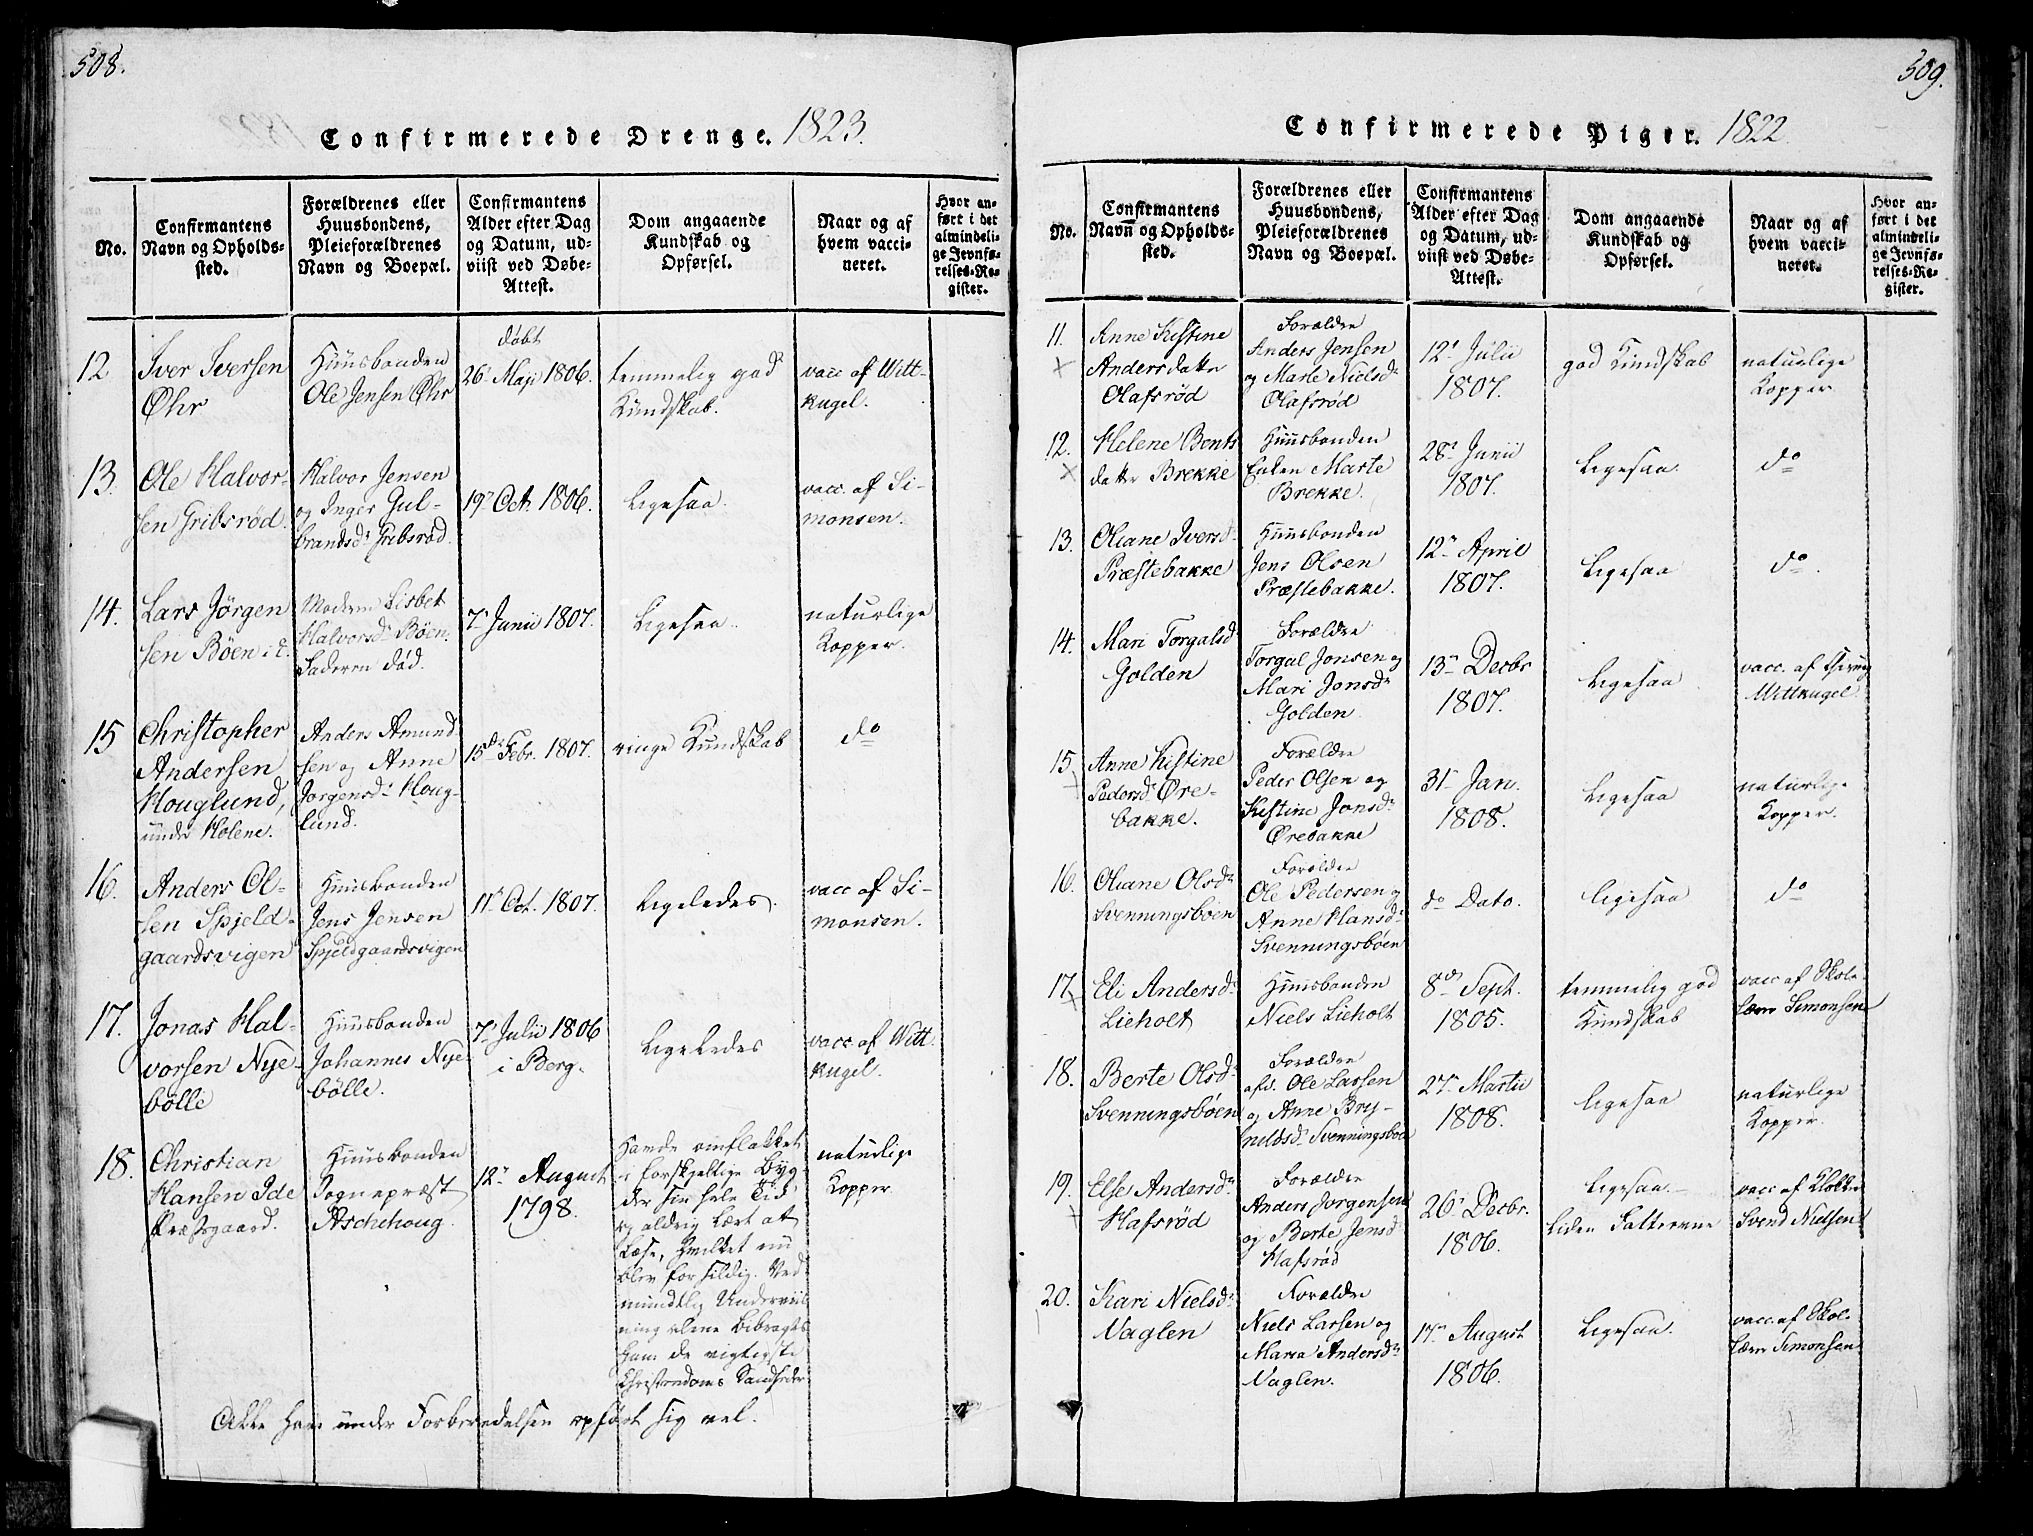 508.
Confirmerede Drenge. 1823.
No.
Confirmantens
Navn og Opholds-
sted.
Forældrenes eller
Huusbondens,
Pleieforældrenes
Navn og Boepæl.
Confirmantens
Alder efter Dag
og Datum, ud-
viist ved Døbe-
Attest.
Dom angaaende
Kundskab og
Opførsel.
Naar og af
hvem vacci-
neret.
Hvor an-
ført i det
almindeli-
ge Jevnfø-
relses-Re-
gister.
12
Iver Iversen
Øhr
Huusbonden
Ole Jensen Øhr
døbt
26. Maji 1806.
temmelig god
Kundskab.
vacc af Witt-
kugel.
13.
Ole Halvor-
sen Gribsrød.
Halvor Jensen
og Inger Gul-
brandsd. Gribsrød
19. Oct. 1806.
Ligesaa.
vacc. af Si-
monsen.
14.
Lars Jörgen
sen Böen i E.
Moderen Lisbet
Halvorsd. Böen.
Faderen död.
7. Junii 1807.
Ligesaa.
naturlige
Kopper.
15
Christopher
Andersen
Houglund,
under Holene.
Anders Amund
sen og Anne
Jorgensd. Houg-
lund.
15de Febr. 1807.
ringe Kundskab
do
16.
Anders Ol-
sen Spjeld-
gaardsvigen
Huusbonden
Jens Jensen
Spjeldgaardsvigen
11. Oct. 1807.
Ligeledes.
vacc af Si-
monsen.
17.
Jonas Hal-
vorsen Nye-
bölle
Huusbonden
Johannes Nye-
bölle.
7. Julii 1806
i Berg.
Ligeledes
vacc af Witt
kugel.
18.
Christian
Hansen Ide
Præstgaard.
Huusbonden
Sognepræst
Aschehoug.
12. August
1798.
Havde omflakket
i forskjellige Byg-
der sin hele Tid
og aldrig lært at
læse, hvilket nu
blev for sildig. Ved
mundtlig Underviis
ning alene bibragtes
ham de vigtigste
Christendoms Sandheder
naturlige
Kopper
Alle have under Forberedelsen opført sig vel.
509.
Confirmerede Piger. 1822.
No.
Confirmantens
Navn og Opholds-
sted.
Forældrenes eller
Huusbondens,
Pleieforældrenes
Navn og Boepæl.
Confirmantens
Alder efter Dag
og Datum, ud-
viist ved Døbe-
Attest.
Dom angaaende
Kundskab og
Opførsel.
Naar og af
hvem vacci-
neret.
Hvor an-
ført i det
almindeli-
ge Jevnfø-
relses-Re-
gister.
11.
Anne Kistine
Andersdatter
Olafsrød
Forældre
Anders Jensen
og Marte Nielsd.
Olafsrød
12. Julii
1807.
god Kundskab
naturlige
Kopper
12.
Helene Bents
datter Brekke
Huusbonden
Enken Marte
Brekke.
28. Junii
1807.
Ligesaa.
do
13.
Oliane Iversd.
Præstebakke
Huusbonden
Jens Olsen
Præstebakke.
12. April
1807.
Ligesaa
do.
14.
Mari Torgalsd
Golden
Forældre
Torgal Jonsen og
Mari Jonsd.
Golden
13. Decbr
1807.
Ligesaa
vacc. af
Wittkugel
15
Anne Kistine
Pedersd. Øre-
bakke.
Forældre
Peder Olsen og
Kistine Jonsd.
Ørebakke
31. Jan.
1808.
Ligesaa
naturlige
Kopper.
16.
Oliane Olsd.
Svenningsböen
Forældre
Ole Pedersen og
Anne Hansd.
Svenningsböen
do Dato.
ligesaa
do
17.
Eli Andersd.
Lieholt
Huusbonden
Niels Lieholt
8de Sept.
1805.
temmelig god
Kundskab
vacc af Skole-
lærer Simonsen
18.
Berte Olsd.
Svenningsböen
Forældre
afd. Ole Larsen
og Anne Bry-
nildsd. Svenningsböen
27. Martii
1808.
ligesaa
naturlige
Kopper.
19.
Else Andersd.
Hafsrød
Forældre
Anders Jorgensen
og Berte Jensd
Hafsrød
26. Decbr.
1806.
Ligesaa.
liden Fatteevne
vacc af Klokker
Svend Nielsen
20.
Kari Nielsd.
Vaglen
Forældre
Niels Larsen og
Maria Andersd.
Vaglen.
17. August
1806.
Ligesaa.
vacc. af Skol-
lærer Simonsen